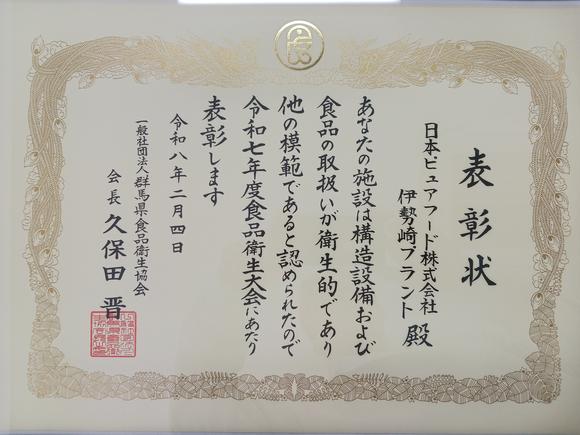 表彰状
日本ピュアフード株式会社
伊勢崎プラント 殿
あなたの施設は構造設備および
食品の取扱いが衛生的であり
他の模範であると認められたので
令和七年度食品衛生大会にあたり
表彰します
令和八年二月四日
一般社団法人群馬県食品衛生協会
会長 久保田 晋